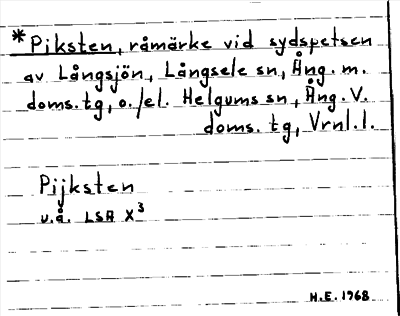 *Piksten, råmärke vid sydspetsen
av Långsjön, Långsele sn, Ång. m.
doms. tg, o./el. Helgums sn, Ång. V.
doms. tg, Vrnl.l.
Pijksten
u.å. LSA X³
H.E. 1968